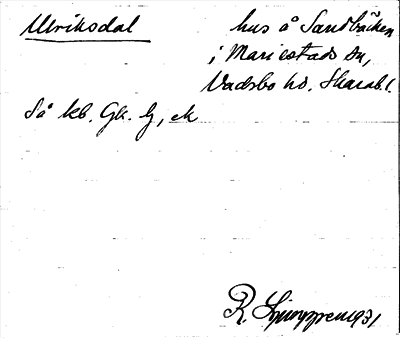 Ulriksdal
hus å Sandbäcken
i Mariestads sn,
Vadsbo hd. Skarab. l.
Så kb. Gk. G, ek
R. Ljunggren 1931